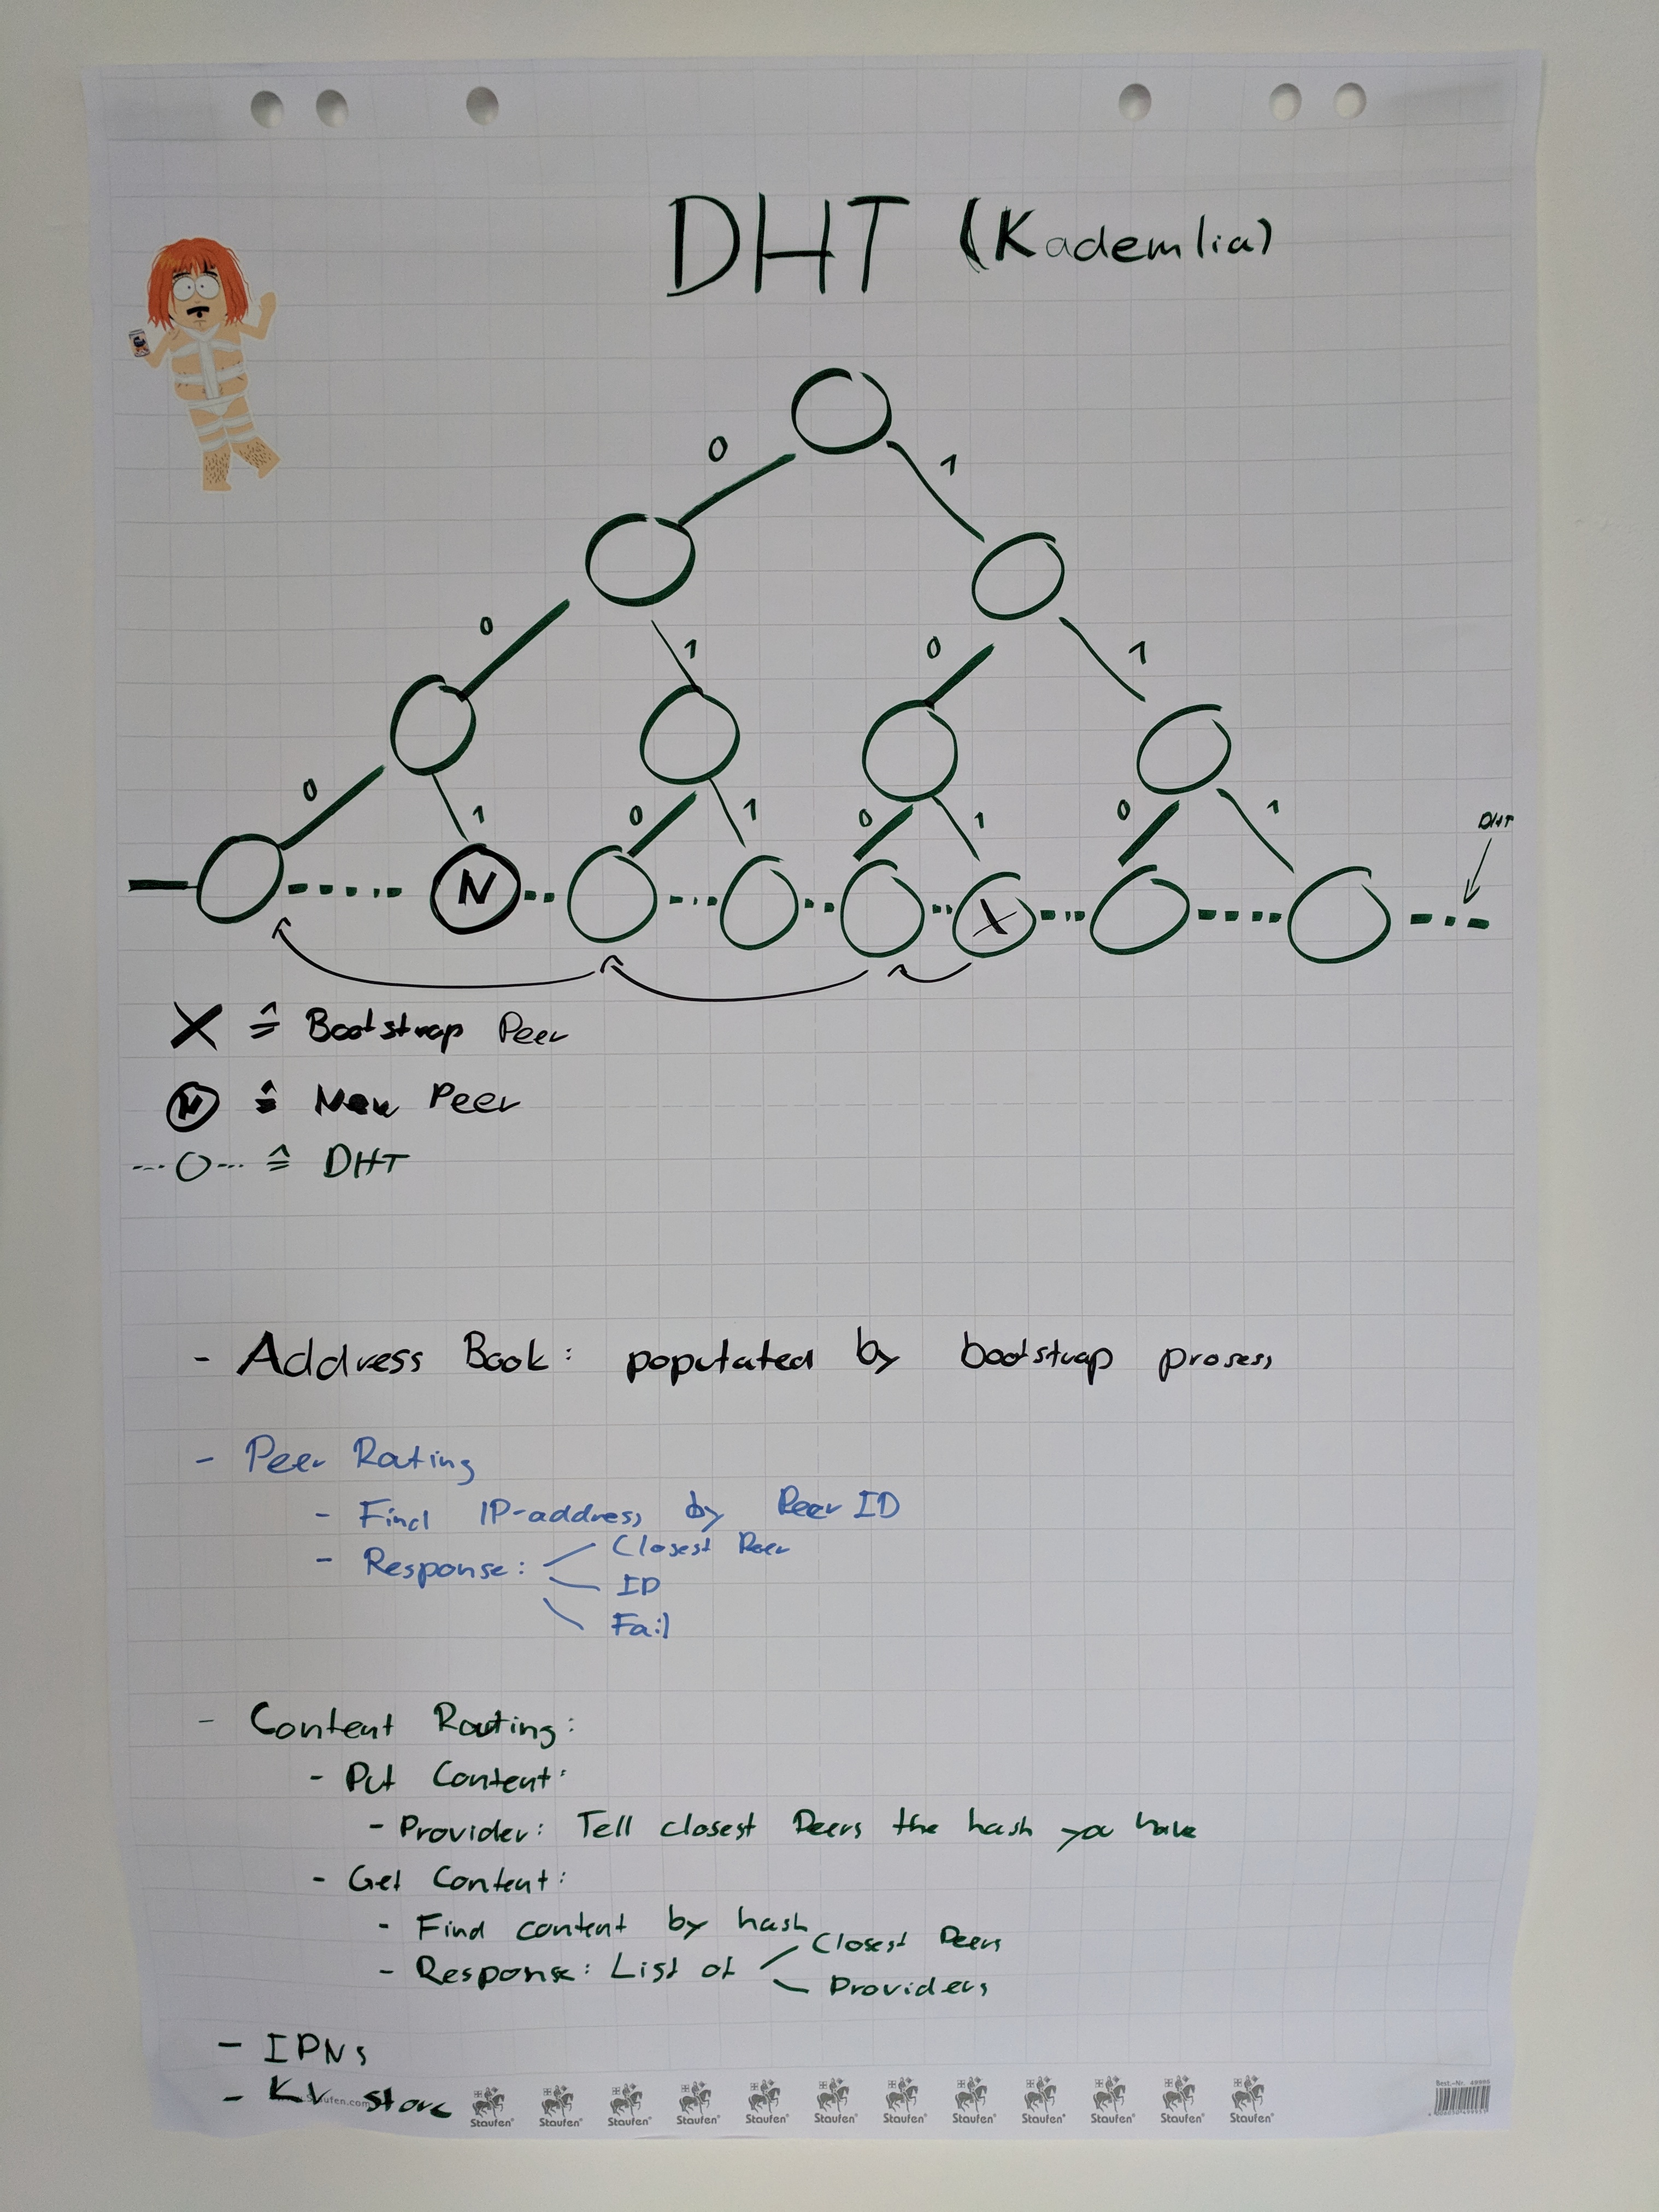 DHT (Kademlia)
0 1
0 1 0 1
0 1 0 1 0 1 0 1
DHT
N X
X ≙ Bootstrap Peer
N ≙ New Peer
---O--- ≙ DHT
- Address Book: populated by bootstrap proses,
- Peer Routing
- Find IP-address, by Peer ID
- Response: Closest Peer
ID
Fail
- Content Routing:
- Put Content:
- Provider: Tell closest Peers the hash you have
- Get Content:
- Find content by hash
- Response: List of Closest Peers
Providers
- IPNs
- KV store
Staufen® Staufen® Staufen® Staufen® Staufen® Staufen® Staufen® Staufen® Staufen® Staufen® Staufen® Staufen®
Best.-Nr. 49995